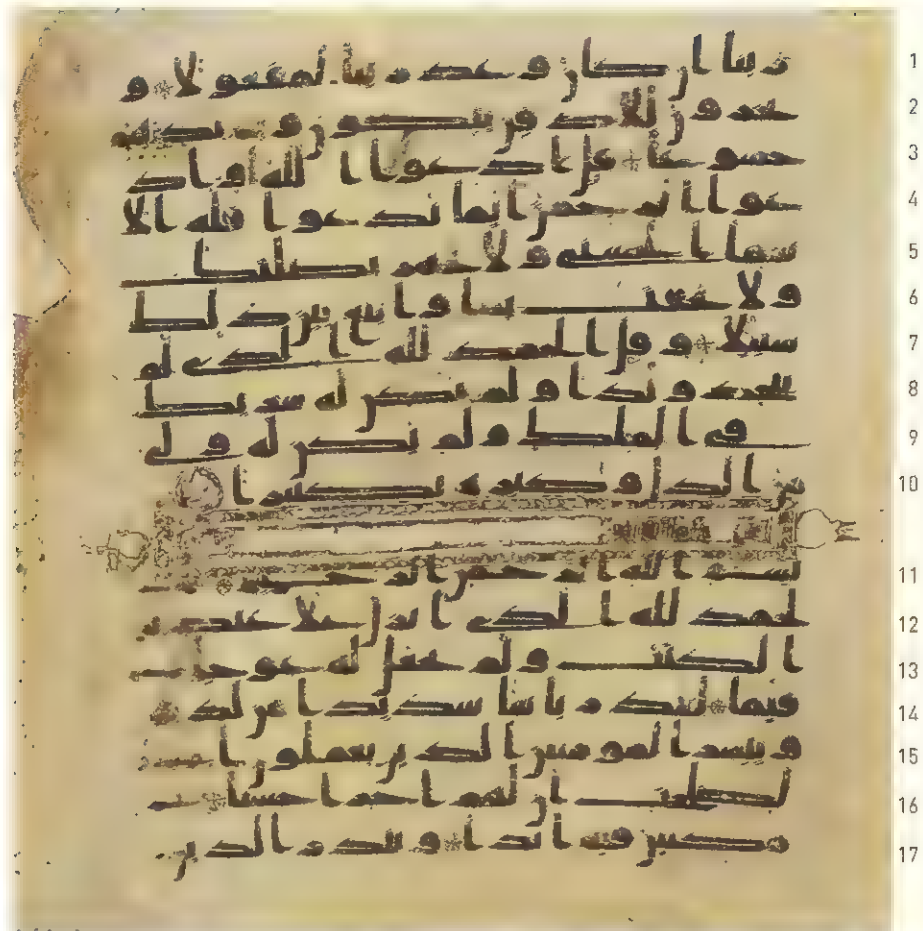 1 ربنا ان كان وعد ربنا لمفعولا و
2 يخرون للاذقن يبكون ويزيدهم
3 خشوعا قل ادعوا الله او اد
4 عوا الرحمن ايما تدعوا فله الا
5 سما الحسنى ولا تجهر بصلتك
6 ولا تخفت بها وابتغ بين ذلك
7 سبيلا وقل الحمد لله الذي لم
8 يتخذ ولدا ولم يكن له شريك
9 في الملك ولم يكن له ولي
10 من الذل وكبره تكبيرا
11 بسم الله الرحمن الرحيم ا
12 لحمد لله الذي انزل على عبده
13 الكتب ولم يجعل له عوجا
14 قيما لينذر باسا شديدا من لد
15 ويبشر المومنين الذين يعملون ا
16 لصلحت ان لهم اجرا حسنا
17 مكثين فيه ابدا وينذر الذين